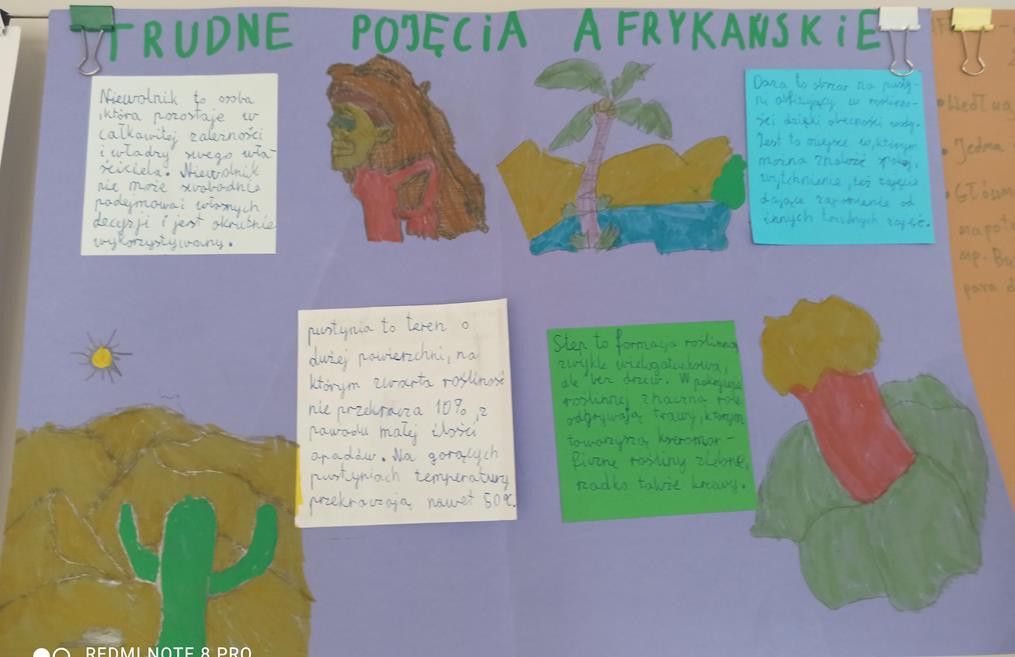 TRUDNE POJĘCIA AFRYKAŃSKIE
Niewolnik to osoba
, która pozostaje w
całkowitej zależności
i władzy swego wła-
ściciela. Niewolnik
nie może swobodnie
podejmować własnych
decyzji i jest okrutnie
wykorzystywany.
Oaza to obszar na pusty-
ni obfitujący w roślinno-
ści dzięki obecności wody.
Jest to miejsce w którym
można znaleźć spokój,
wytchnienie, też zajęcie
dające zapomnienie od
innych trudnych zajęć.
pustynia to teren o
dużej powierzchni, na
którym zwarta roślinność
nie przekracza 10% z
powodu małej ilości
opadów. Na gorących
pustyniach temperatury
przekraczają nawet 50°C.
Step to formacja roślinna,
zwykle wielogatunkowa,
ale bez drzew. W pokrywie
roślinnej znaczną rolę
odgrywają trawy, którym
towarzyszą kseromor-
ficzne rośliny zielone,
rzadko także krzewy.
Według
Jedna
Główn
na poł
np. Bu
para d
REDMI NOTE 8 PRO